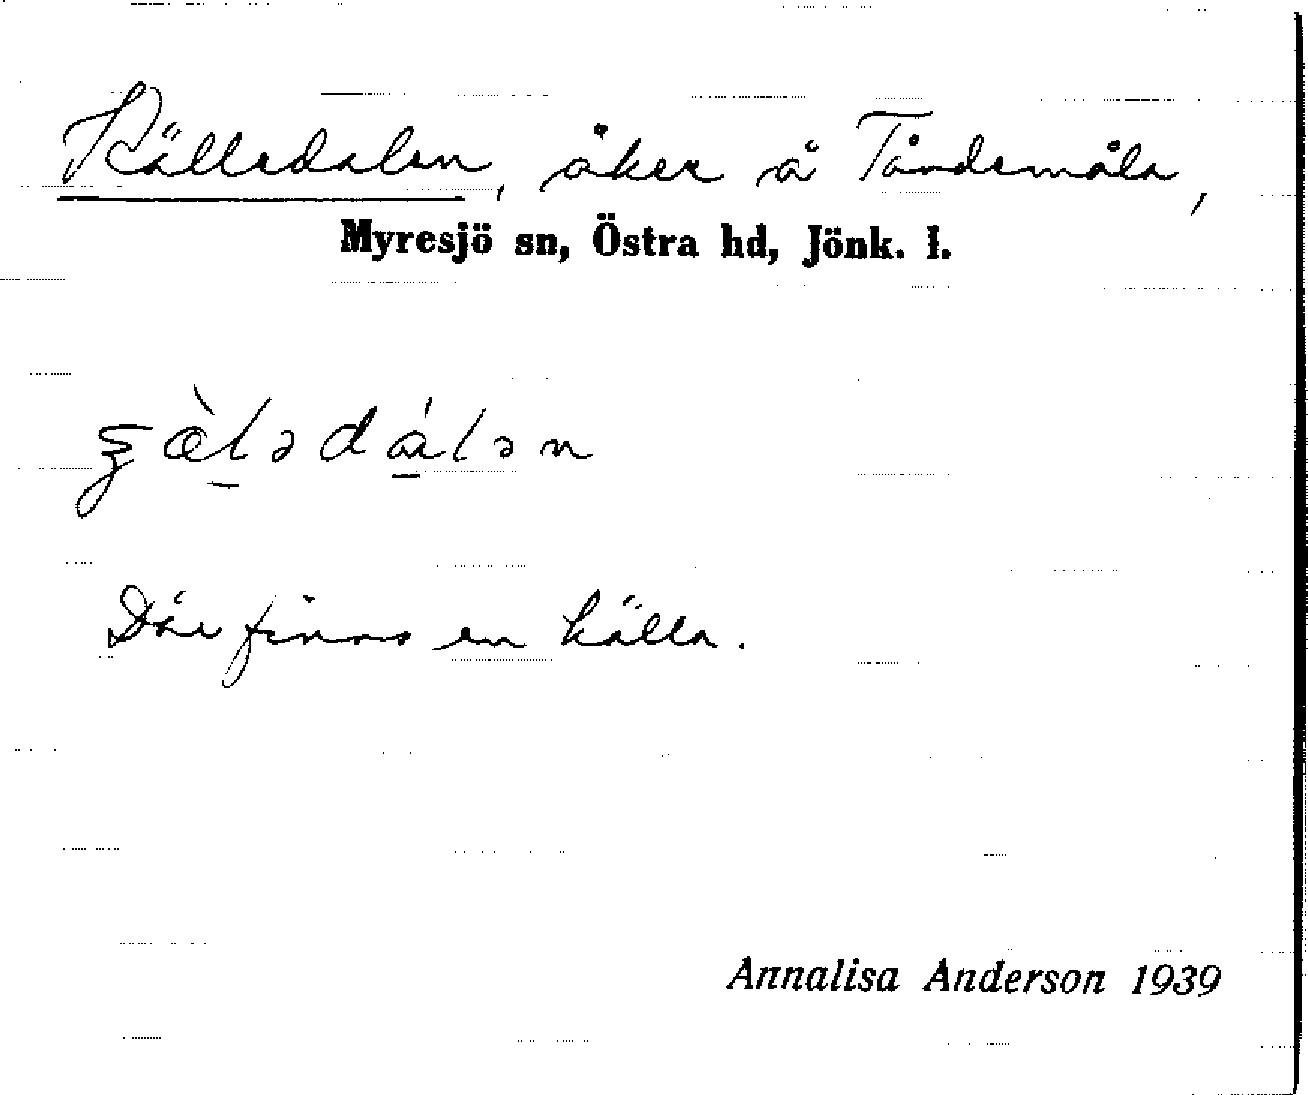 Källedalen, åker å Tåndemåla,
Myresjö sn, Östra hd, Jönk. l.
ʒæ̀lədálən
Där finns en källa.
Annalisa Anderson 1939